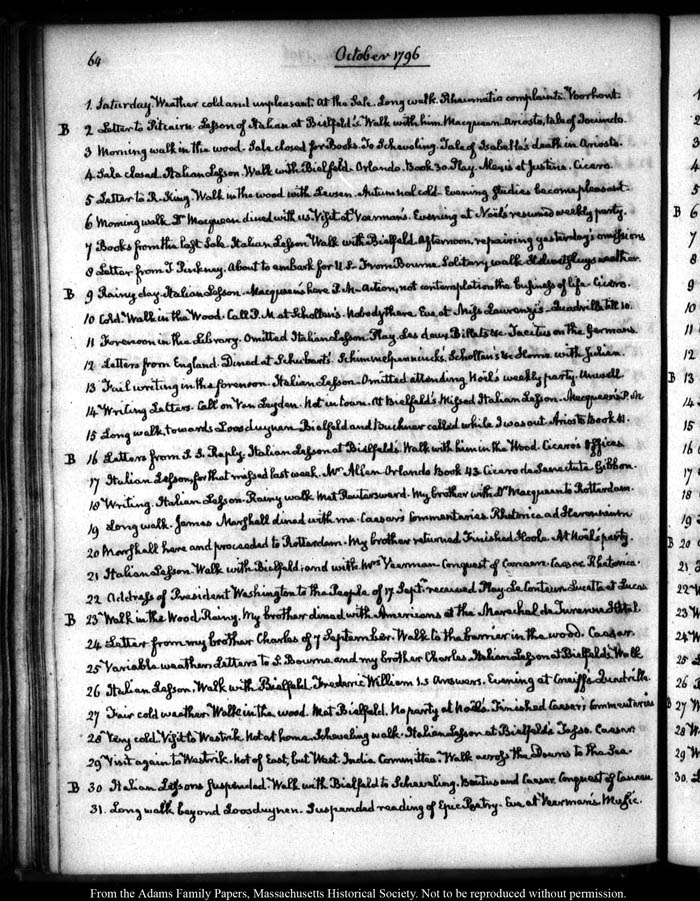 64
October 1796
1. Saturday. Weather cold and unpleasant. At the Sale. Long walk. Rheumatic complaints. Voorhout.
B 2 Letter to Pitcairn. Lesson of Italian at Bielfeld's. Walk with him. Macqueen. Ariosto, tale of Jocundo.
3 Morning walk in the wood. Sale closed for Books. To Scheveling. Tale of Isabella's death in Ariosto.
4 Sale closed. Italian Lesson. Walk with Bielfeld. Orlando. Book 30. Play. Alexis et Justine. Cicero.
5 Letter to R. King. Walk in the wood with Levsen. Autumnal cold. Evening studies become pleasant.
6 Morning walk. Dr. Macqueen dined with us. Visit at Veerman's. Evening at Noël's resumed weekly party.
7 Books from the last Sale. Italian Lesson. Walk with Bielfeld. Afternoon, repairing yesterday's omissions
8 Letter from T. Pinckney. About to embark for U.S. From Bourne. Solitary walk. Helvoetsluys weather.
B 9 Rainy day. Italian Lesson. Macqueen's here P.M. Action, not contemplation the business of life. Cicero.
10 Cold. Walk in the Wood. Call P.M. at Scholten's. Nobody there. Eve at Miss Lauwenzy's. Quadrille till 10.
11 Forenoon in the Library. Omitted Italian Lesson. Play. Les deux Billets &c Tacitus on the Germans.
12 Letters from England. Dined at Schubart's. Schimmelpenninck's. Scholten's &c Home with Julien.
13 Fail writing in the forenoon. Italian Lesson. Omitted attending Noël's weekly party. Unwell
14 Writing Letters. Call on Van Leyden. Not in town. At Bielfeld's Missed Italian Lesson. Macqueen's P.M.
15 Long walk, towards Loosduynen. Bielfeld and Buchner called while I was out. Ariosto Book 41.
B 16 Letters from Reply. Italian Lesson at Bielfeld's. Walk with him in the Wood. Cicero's Offices
17 Italian Lesson, for that missed last week. Mr. Allen. Orlando Book 43. Cicero de Senectute. Gibbon.
18 Writing. Italian Lesson. Rainy walk. Met Reutersward. My brother with Dr. Macqueen to Rotterdam.
19 Long walk. James Marshall dined with me. Caesar's Commentaries. Rhetorica ad Herennium
20 Marshall here and proceeded to Rotterdam. My brother returned. Finished Hoole. At Noël's party.
21 Italian Lesson. Walk with Bielfeld; and with Mrs. Veerman. Conquest of Canaan. Caesar. Rhetorica.
22 Address of President Washington to the People of 17 Septr. received. Play. Le Conteur. Lucette et Lucas
B 23 Walk in the Wood. Rainy. My brother dined with Americans at the Marechal de Turenne Hotel.
24 Letter from my brother Charles of 7 September. Walk to the barrier in the wood. Caesar.
25 Variable weather. Letters to S. Bourne and my brother Charles. Italian Lesson at Bielfeld's. Walk
26 Italian Lesson. Walk with Bielfeld. Frederic William's Answers. Evening at Quadrille.
27 Fair cold weather. Walk in the wood. Met Bielfeld. No party at Noël's. Finished Caesar's Commentaries
28 Very cold. Visit to Westrik. Not at home. Scheveling walk. Italian Lesson at Bielfeld's. Tasso. Caesar
29 Visit again to Westrik. Not of East, but West India Committee. Walk across the Downs to the Sea.
B 30 Italian Lessons suspended. Walk with Bielfeld to Scheveling. and Caesar. Conquest of Canaan
31. Long walk beyond Loosduynen. Suspended reading of Epic Poetry. Eve at Veerman's. Music.
From the Adams Family Papers, Massachusetts Historical Society. Not to be reproduced without permission.